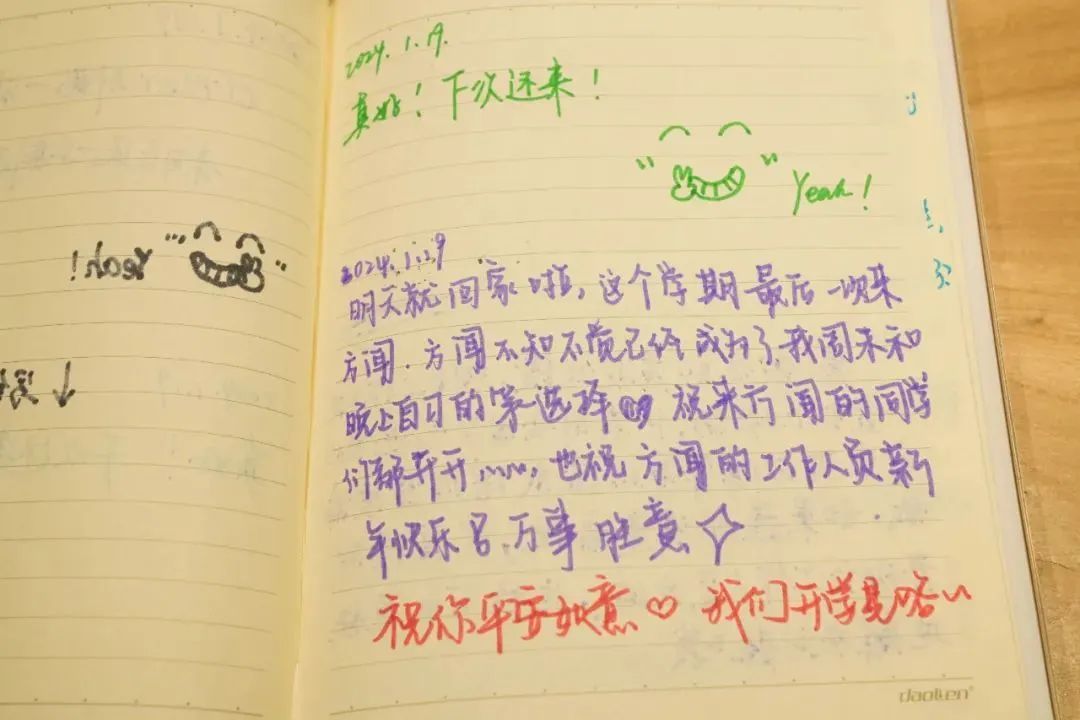 2024.1.19.
真好！下次还来！
Yeah!
2024.1.19
明天就回家啦，这个学期最后一次来
方闻.方闻不知不觉已经成为了我周末和
晚上自习的第选择 祝来方闻的同学
们都开开心心，也祝方闻的工作人员新
年快乐 万事胜意
祝你平安如意♡ 我们开学见咯~
Yeah!
daolen